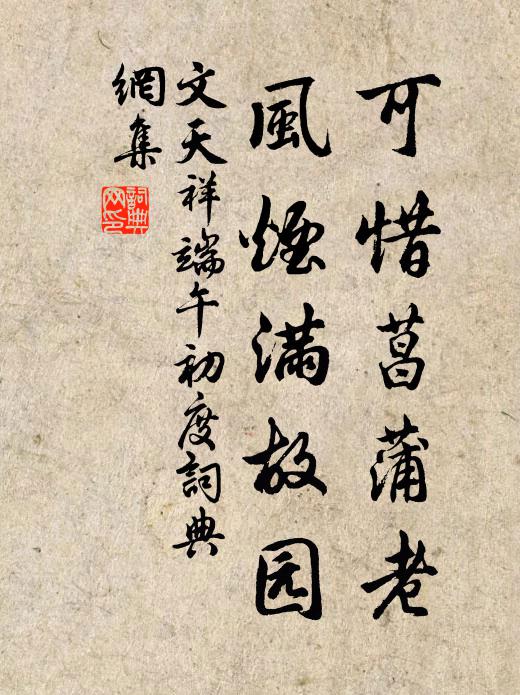 可惜菖蒲老
風煙满故园
文天祥端午初度詞典
網集
詞典网印